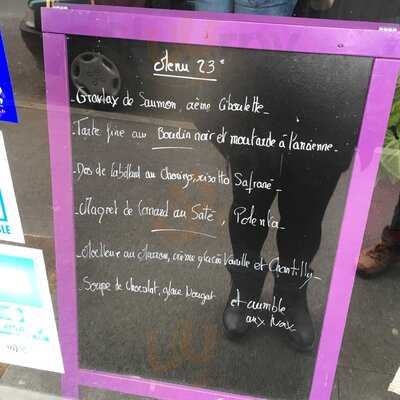 Menu 23€
- Gravlax de Saumon, crème Ciboulette -
- Tarte fine au Boudin noir et moutarde à l'ancienne -
- Dos de Cabillaud au Chorizo, risotto Safrané -
- Magret de Canard au Saté, Polenta -
- Moelleux au Marron, crème glacée Vanille et Chantilly -
- Soupe de Chocolat, glace Nougat
et crumble
aux Noix